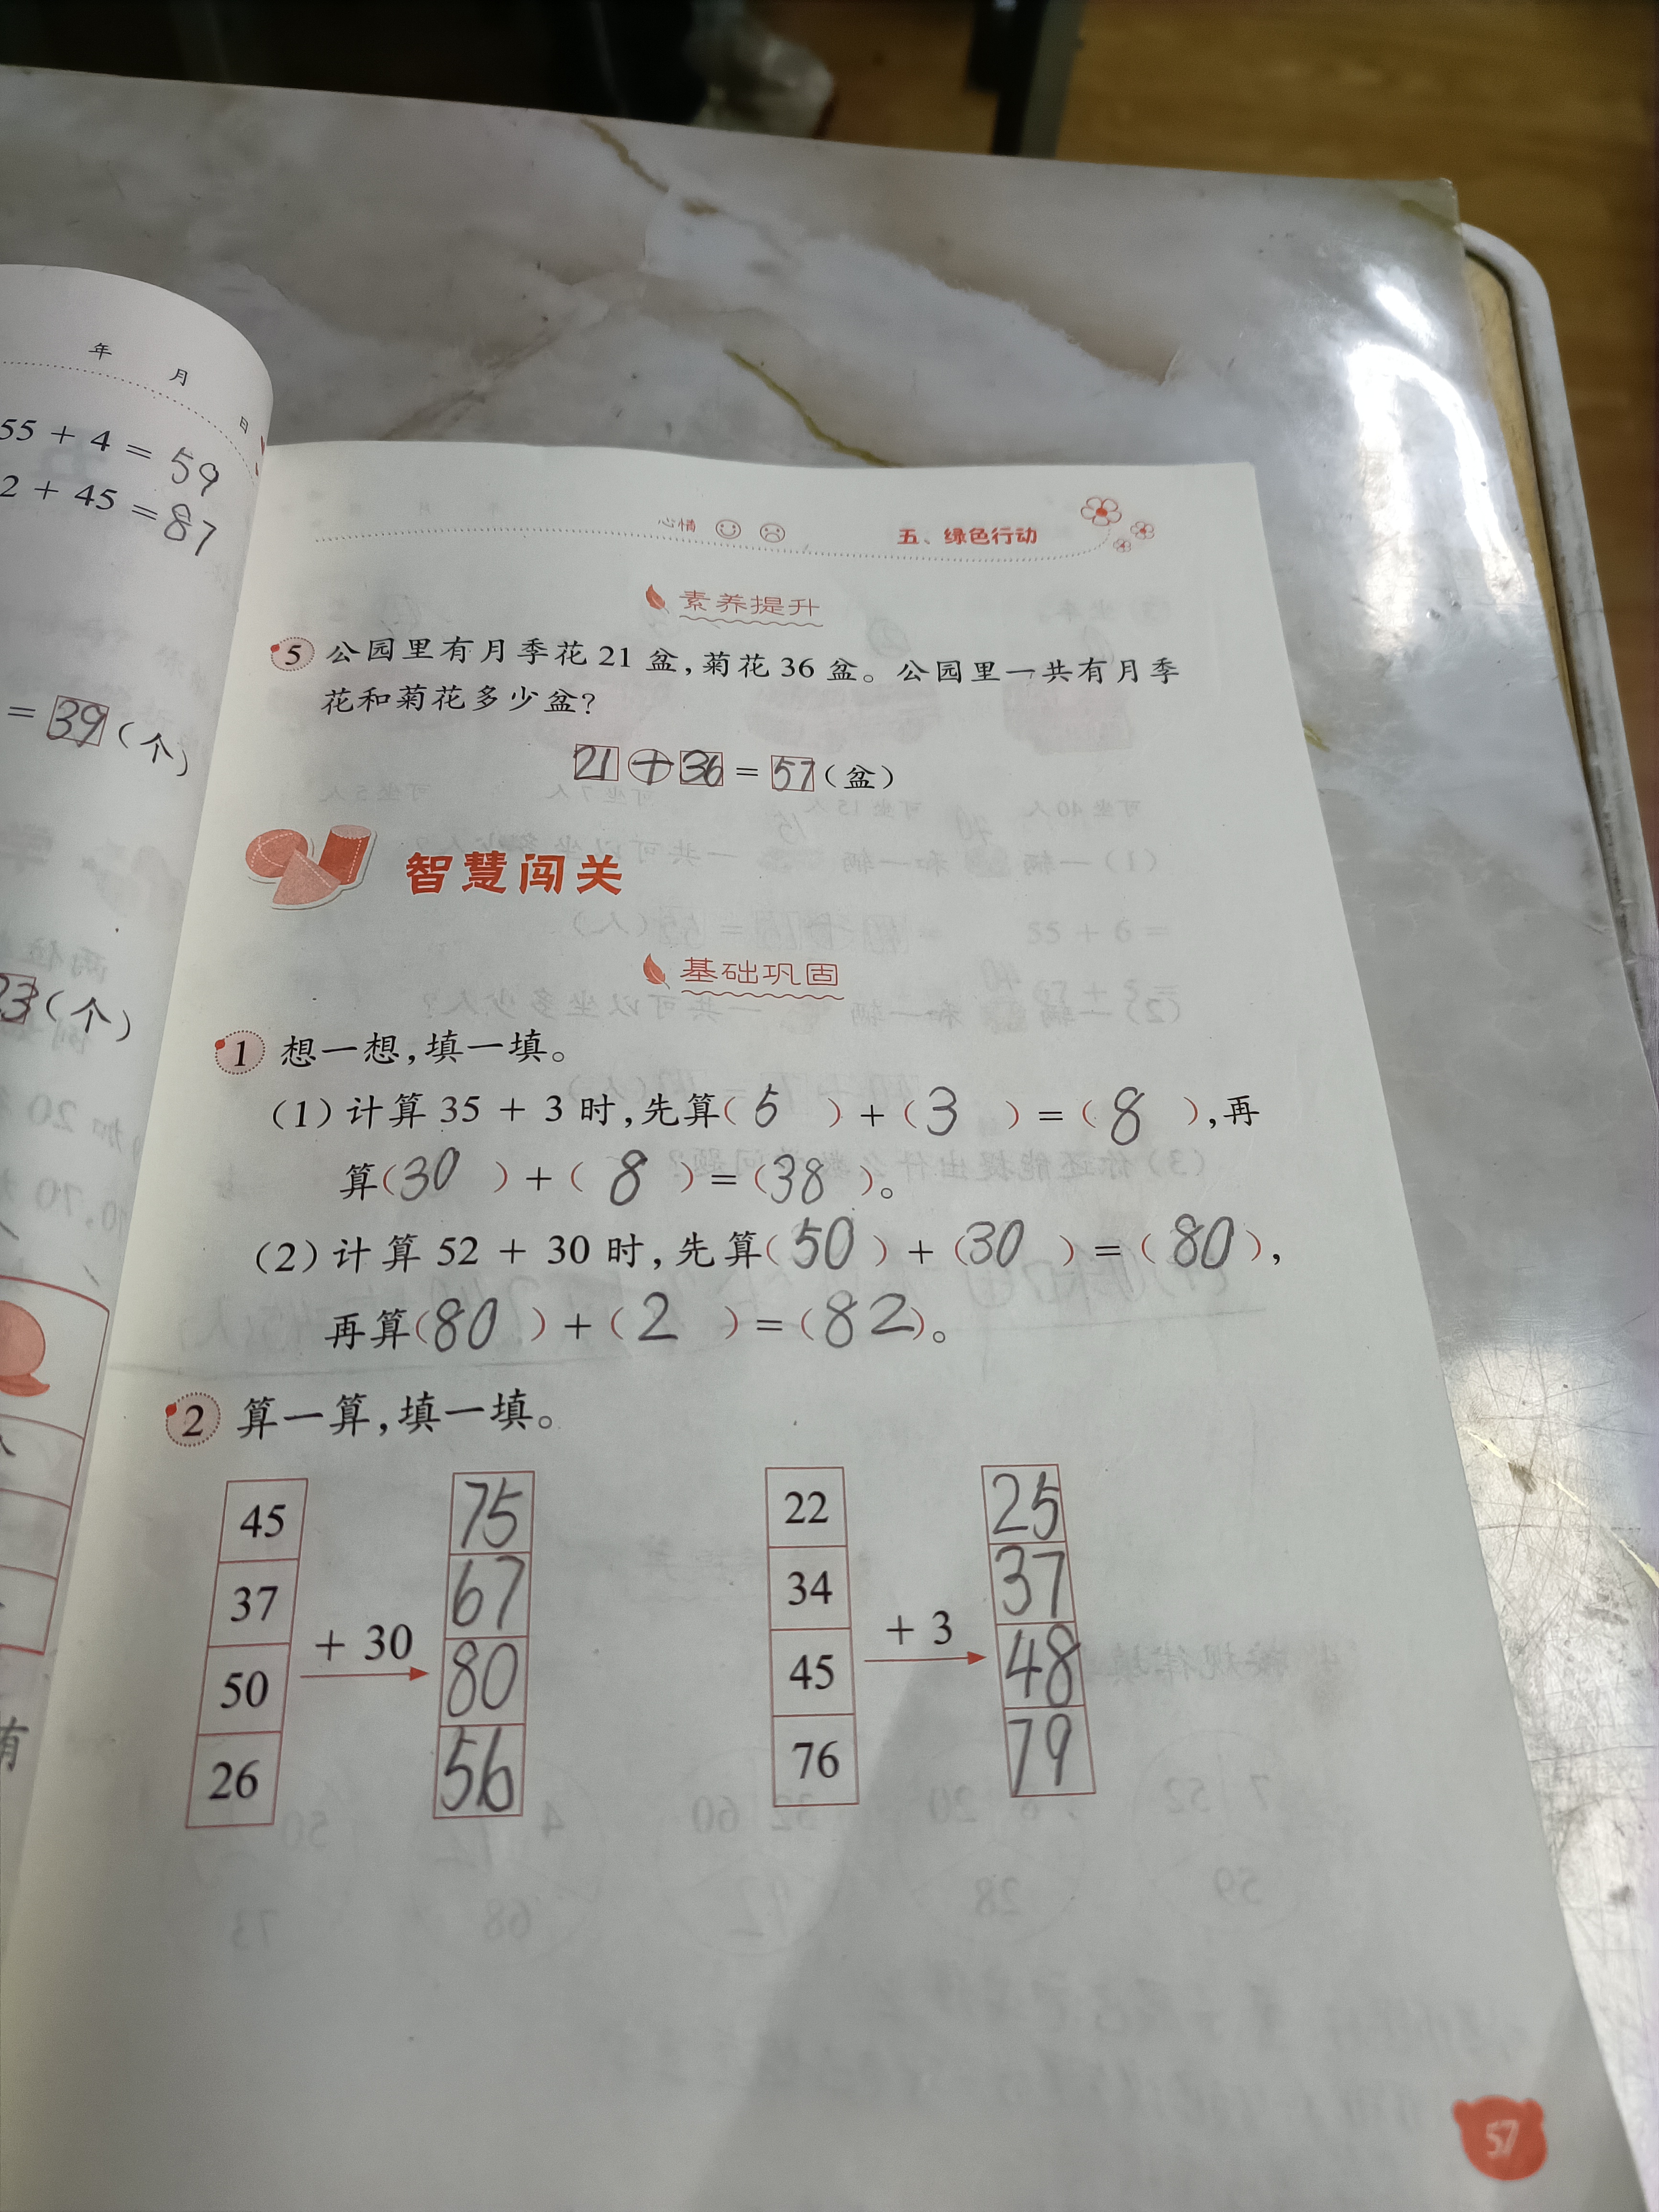 年 月 日
55 + 4 = 59
2 + 45 = 87
= 39 (个)
23 (个)
心情
五、绿色行动
素养提升
5 公园里有月季花 21 盆,菊花 36 盆。公园里一共有月季
花和菊花多少盆?
21 + 36 = 57 (盆)
智慧闯关
基础巩固
1 想一想,填一填。
(1) 计算 35 + 3 时,先算( 5 ) + ( 3 ) = ( 8 ),再
算( 30 ) + ( 8 ) = ( 38 )。
(2) 计算 52 + 30 时,先算( 50 ) + ( 30 ) = ( 80 ),
再算( 80 ) + ( 2 ) = ( 82 )。
2 算一算,填一填。
45 75 22 25
37 67 34 37
+ 30 + 3
50 80 45 48
26 56 76 79
有
57